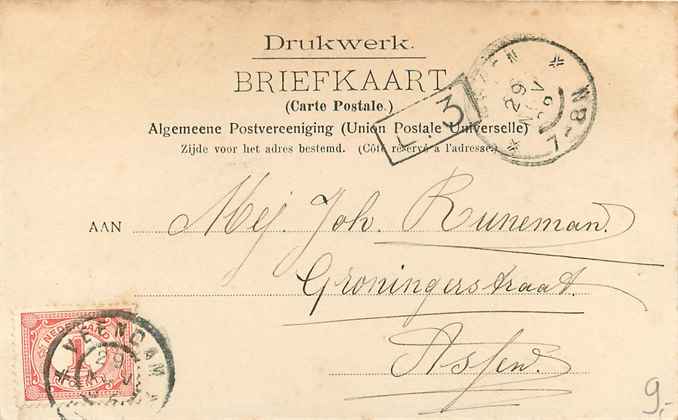 Drukwerk.
BRIEFKAART
(Carte Postale.)
Algemeene Postvereeniging (Union Postale Universelle)
Zijde voor het adres bestemd. (Côté réservé a l'adresse.)
3
29
NOV
7-8N
AAN Mej. Joh. Runeman.
Groningerstraat.
Assen.
NEDERLAND
1
VEENDAM
29
9,-